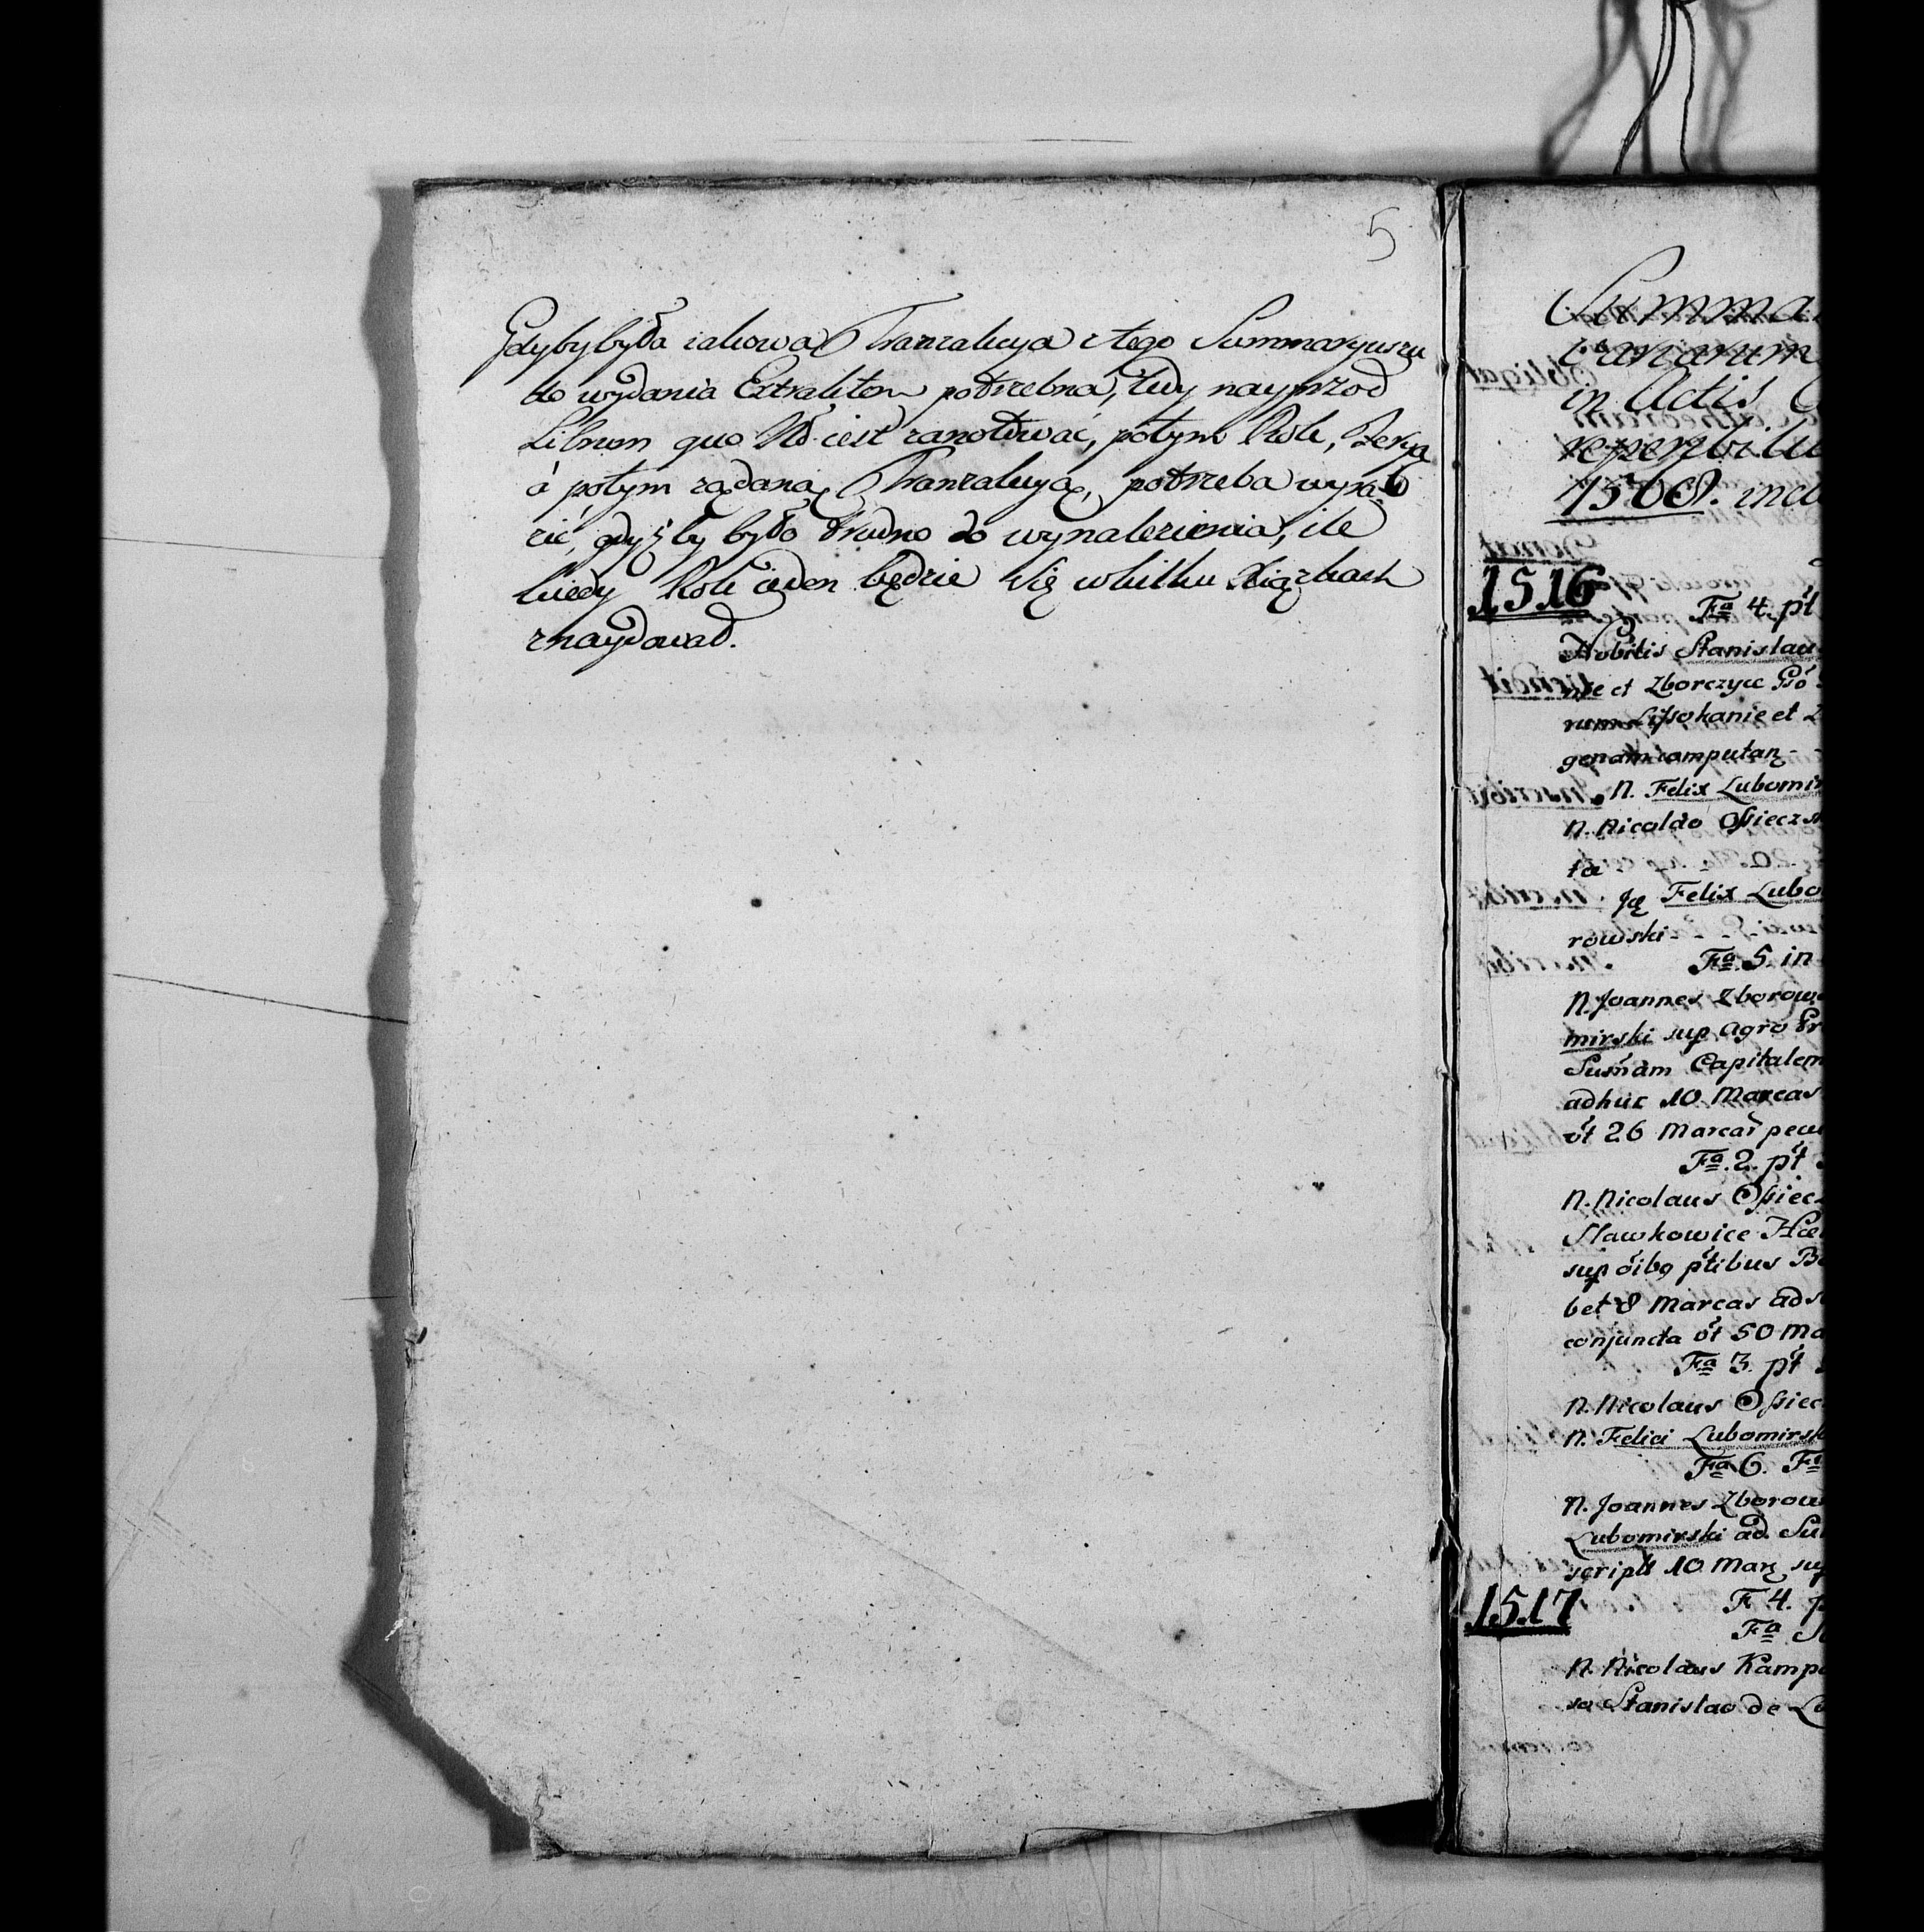 5
Gdyby była iakowa Tranzakcya z tego Summaryuszu
do wydania Extraktem potrzebna, tedy nayprzod
Librum quo No iest zanotować, potym Rok, Feryą
á potym żądaną Tranzakcyą, potrzeba wyra-
zić, gdyż by było trudno do wynalezienia, ile
kiedy Rok ieden będzie się w kilku Xiązkach
znaydował.
Summa
in Actis
1508. incl
Obligat
1516
Fa 4. pt
Nobilis Stanislau
et Zborczyce
et
genam computan
Inscribit N. Felix Lubomir
N. Nicolao Ossieczs
ta
Felix Lubo
rowski
Fa. 5. in
N. Joannes Zborows
mirski sup agro
Sum̃am Capitalem
adhuc 10 Marcas
ót 26 Marcar pecu
Fa. 2. pt
N. Nicolaus Ossiecz
Sławkowice Hæ
sup oibq ptibus B
bet 8 Marcas ad s
conjuncta ót 50 Ma
Fa 3. pt
N. Nicolaus Ossiec
N. Felici Lubomirsk
Fa 6. Fe
N. Joannes Zborow
Lubomirski ad Su
script 10 Mar su
1517
F 4. p
Fa
N. Nicolaus Kamp
so Stanislao de Lu